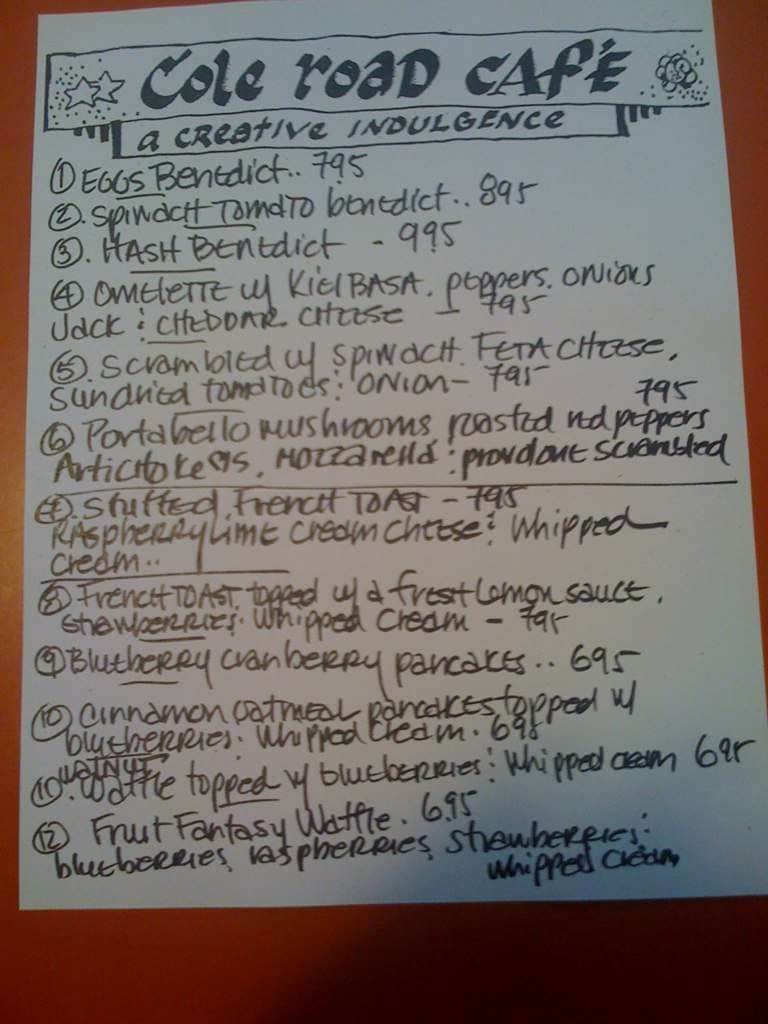 Cole road CAFÉ
a CREATIVE INDULGENCE
① EGGS Benedict.. 795
②. Spinach Tomato benedict.. 895
③. HASH BENEDICT - 995
④ Omelette w/ KIELBASA. peppers. onions
Jack & CHEDDAR CHEESE - 795
⑤. Scrambled w/ SPINACH. FETA CHEESE.
Sundried tomatoes & onion - 795
795
⑥ Portabello mushrooms roasted red peppers
Artichoke ♡s. mozzarella & provolone scrambled
⑦. Stuffed French TOAST - 795
RASPBERRY Lime cream cheese & Whipped
cream..
⑧ French TOAST. topped w/ a fresh Lemon sauce.
strawberries & Whipped Cream - 795
⑨ Blueberry cranberry pancakes.. 695
⑩ Cinnamon oatmeal pancakes topped w/
blueberries & Whipped Cream. 695
⑩. WALNUT Waffle topped w/ blueberries & Whipped cream 695
⑫ Fruit Fantasy Waffle. 695
blueberries, raspberries, strawberries &
whipped cream